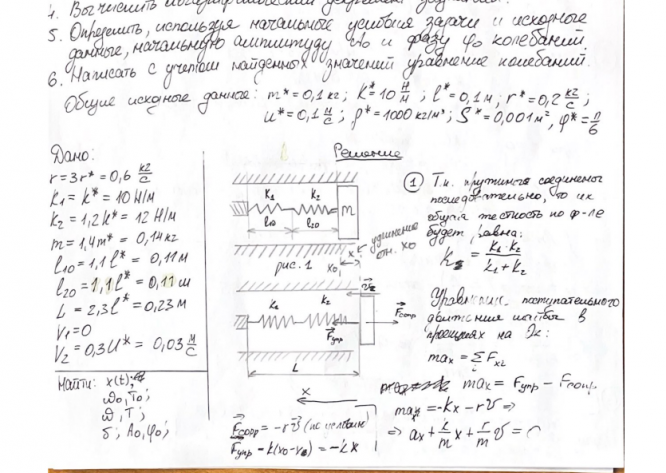 4. Вычислить логарифмический
5. Определить, используя начальные условия задачи и исходные
данные, начальную амплитуду A₀ и фазу φ₀ колебаний.
6. Написать с учетом найденных значений уравнение колебаний.
Общие исходные данные: m* = 0,1 кг; k* = 10 Н/м; l* = 0,1 м; r* = 0,2 кг/с;
u* = 0,1 м/с; ρ* = 1000 кг/м³; S* = 0,001 м², φ* = π/6
Решение
Дано:
r = 3r* = 0,6 кг/с
K₁ = k* = 10 Н/м
K₂ = 1,2k* = 12 Н/м
m = 1,4m* = 0,14 кг
l₁₀ = 1,1l* = 0,11 м
l₂₀ = 1,1l* = 0,11 м
L = 2,3l* = 0,23 м
V₁ = 0
V₂ = 0,3U* = 0,03 м/с
Найти: x(t);
ω₀, T₀;
ω, T;
δ; A₀, φ₀;
K₁ K₂ m
l₁₀ l₂₀
x₀ x удлинение
отн. x₀
рис. 1
K₁ K₂
F упр F сопр
L
x
F сопр = -rV
F упр -k(x₀-x₀) = -kx
① Т.к. пружины соединены
последовательно, то их
общая жесткость по ф-ле
будет равна:
K = K₁·K₂ / K₁+K₂
Уравнение поступательного
движения шайбы в
проекциях на Ox:
max = Σ Fxi
max = Fупр - Fсопр
max = -kx - rv ⇒
⇒ ax + k/m x + r/m v =